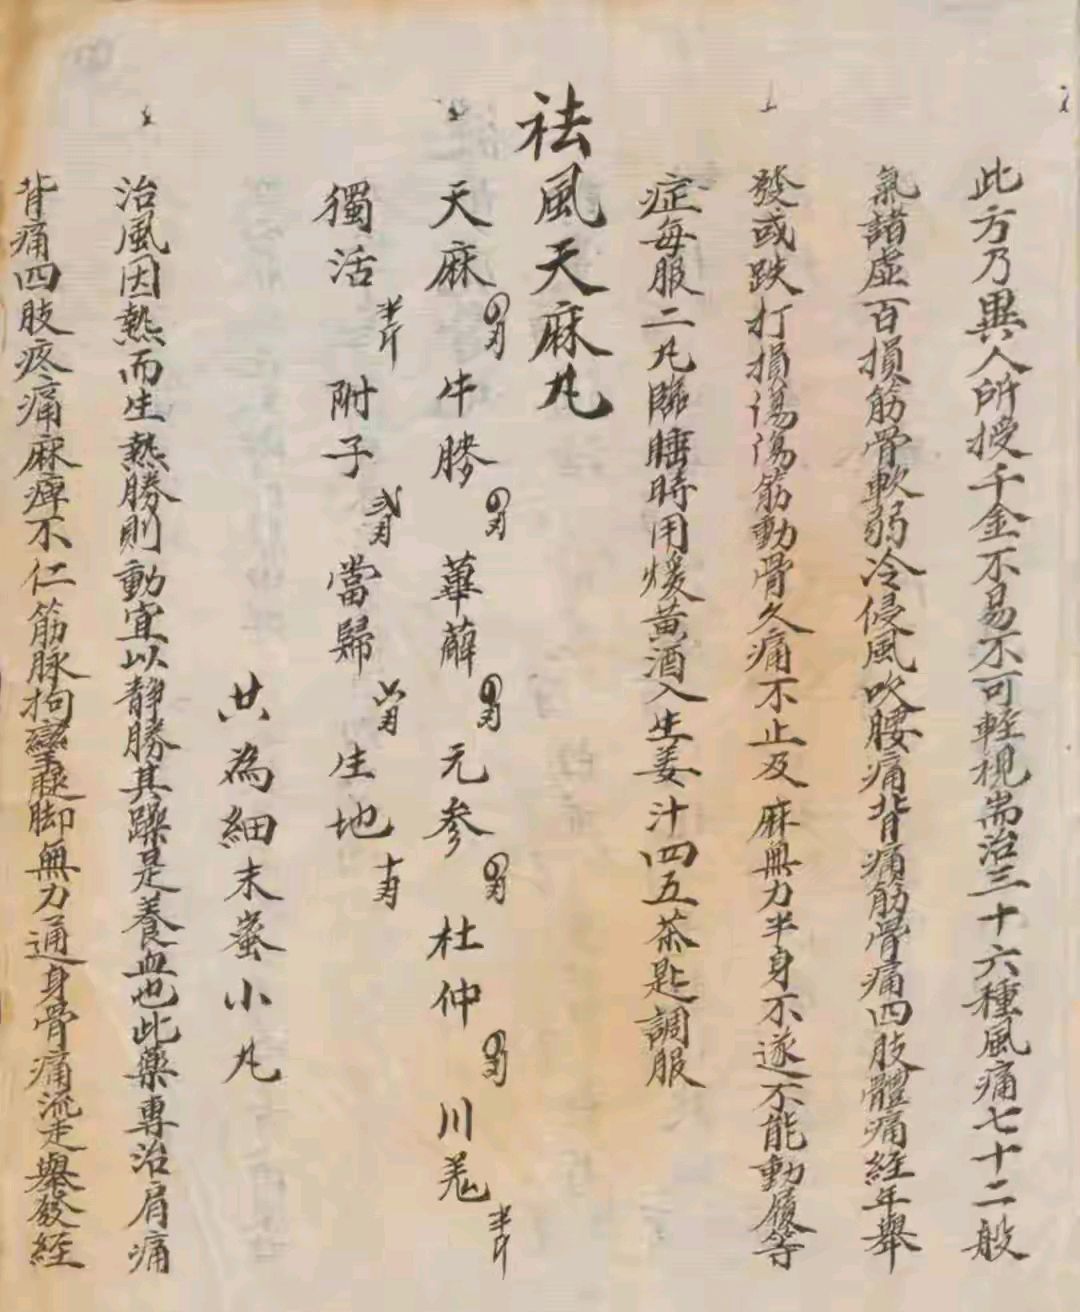 此方乃異人所授千金不易不可輕視耑治三十六種風痛七十二般
氣諸虛百損筋骨軟弱冷侵風吹腰痛背痛筋骨痛四肢體痛経年舉
發或跌打損傷傷筋動骨久痛不止及麻無力半身不遂不能動履等
症每服二丸臨睡時用煖黃酒入生姜汁四五茶匙調服
祛風天麻丸
天麻 牛膝 萆薢 元参 杜仲 川羗半斤
獨活半斤 附子 當歸 生地
共為細末蜜小丸
治風因熱而生熱勝則動宜以靜勝其躁是養血也此藥專治肩痛
背痛四肢疼痛麻痺不仁筋脉拘攣腿脚無力通身骨痛流走舉發経